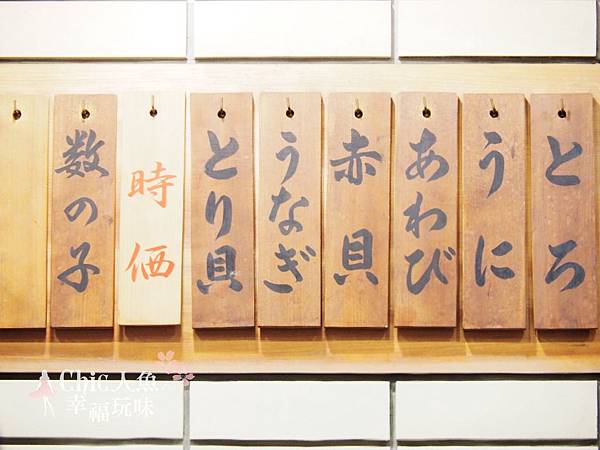 とろ
うに
あわび
赤貝
うなぎ
とり貝
時価
数の子
Chic人魚
幸福玩味